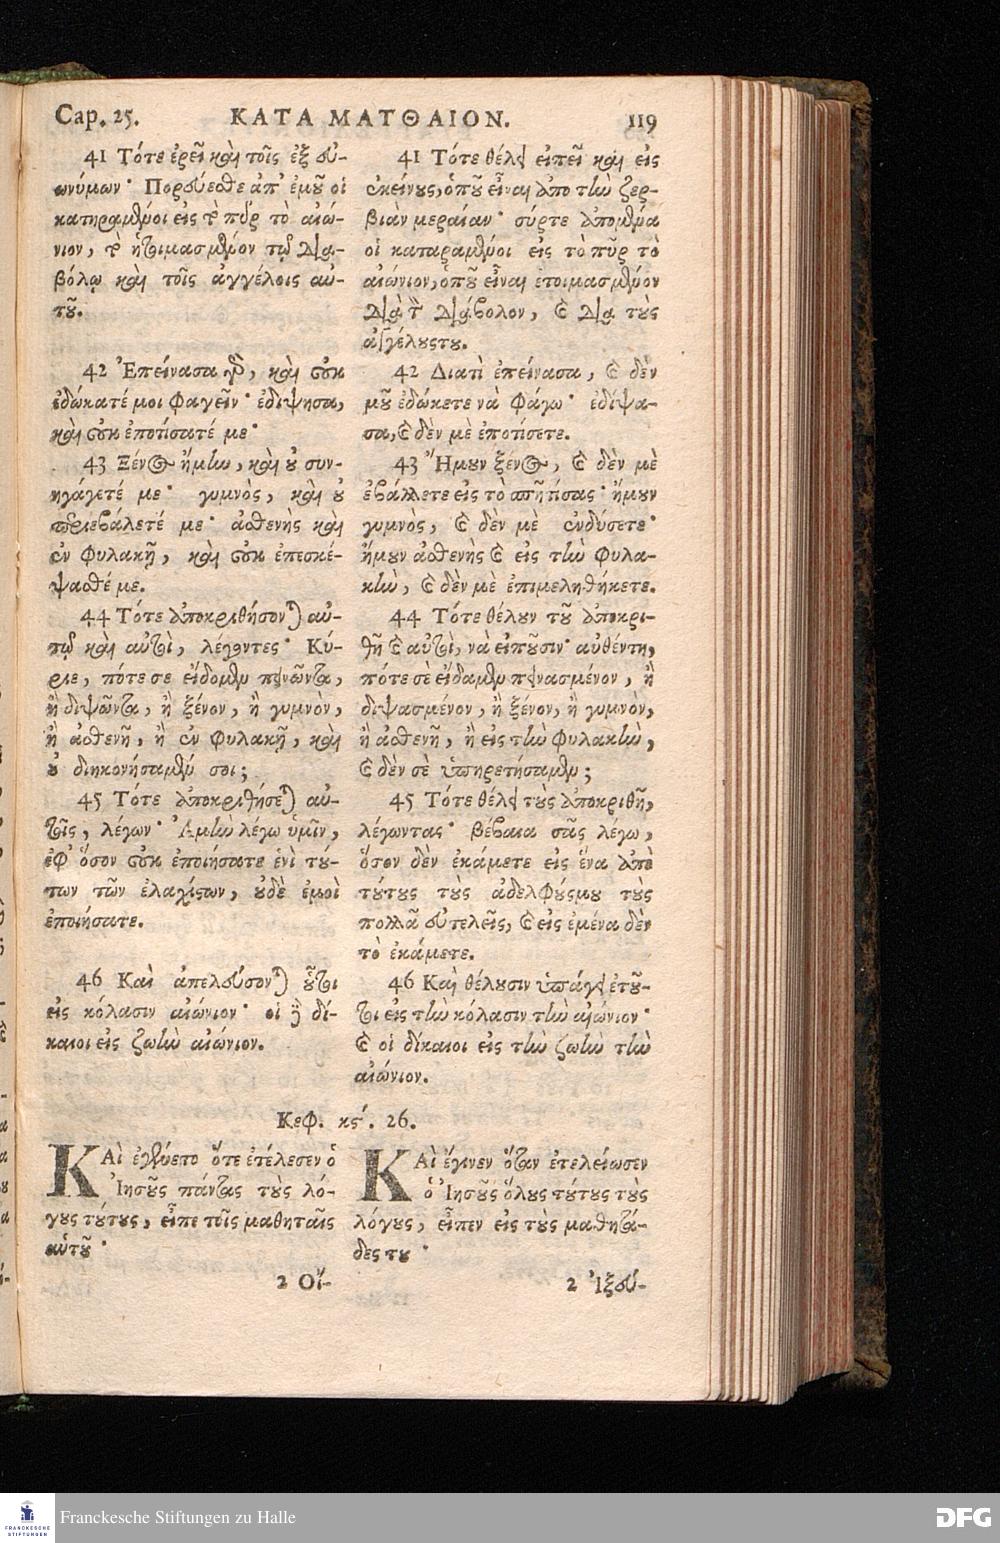 Cap. 25. ΚΑΤΑ ΜΑΤΘΑΙΟΝ. 119
41 Τότε ἐρεῖ καὶ τοῖς ἐξ εὐ-
ωνύμων· Πορεύεσθε ἀπ' ἐμοῦ οἱ
κατηραμένοι εἰς τὸ πῦρ τὸ αἰώ-
νιον, τὸ ἡτοιμασμένον τῷ Δια-
βόλῳ καὶ τοῖς ἀγγέλοις αὐ-
τοῦ.
42 Ἐπείνασα γὰρ, καὶ οὐκ
ἐδώκατέ μοι φαγεῖν· ἐδίψησα,
καὶ οὐκ ἐποτίσατέ με·
43 Ξένος ἤμην, καὶ οὐ συν-
ηγάγετέ με· γυμνὸς, καὶ οὐ
περιεβάλετέ με· ἀσθενὴς καὶ
ἐν φυλακῇ, καὶ οὐκ ἐπεσκέ-
ψασθέ με.
44 Τότε ἀποκριθήσονται αὐ-
τῷ καὶ αὐτοὶ, λέγοντες· Κύ-
ριε, πότε σε εἴδομεν πεινῶντα,
ἢ διψῶντα, ἢ ξένον, ἢ γυμνὸν,
ἢ ἀσθενῆ, ἢ ἐν φυλακῇ, καὶ
οὐ διηκονήσαμέν σοι;
45 Τότε ἀποκριθήσεται αὐ-
τοῖς, λέγων· Ἀμὴν λέγω ὑμῖν,
ἐφ' ὅσον οὐκ ἐποιήσατε ἑνὶ τού-
των τῶν ἐλαχίστων, οὐδὲ ἐμοὶ
ἐποιήσατε.
46 Καὶ ἀπελεύσονται οὗτοι
εἰς κόλασιν αἰώνιον· οἱ δὲ δί-
καιοι εἰς ζωὴν αἰώνιον.
41 Τότε θέλει εἰπεῖ καὶ εἰς
ἐκείνους, ὁποῦ εἶναι ἀπὸ τὴν ζερ-
βιὰν μεραίαν· σύρτε ἀπομένα
οἱ καταραμένοι εἰς τὸ πῦρ τὸ
αἰώνιον, ὁποῦ εἶναι ἑτοιμασμένον
Διὰ τὸν Διάβολον, καὶ Διὰ τοὺς
ἀγγέλουςτου.
42 Διατὶ ἐπείνασα, καὶ δὲν
μοῦ ἐδώκετε νὰ φάγω· ἐδίψα-
σα, καὶ δὲν μὲ ἐποτίσετε.
43 Ἤμουν ξένος, καὶ δὲν μὲ
ἐβάλλετε εἰς τὸ σπῆτίσας· ἤμουν
γυμνὸς, καὶ δὲν μὲ ἐνδύσετε·
ἤμουν ἀσθενὴς καὶ εἰς τὴν φυλα-
κὴν, καὶ δὲν μὲ ἐπιμεληθήκετε.
44 Τότε θέλουν τοῦ ἀποκρι-
θῆ καὶ αὐτοὶ, νὰ εἰποῦσιν· αὐθέντη,
πότε σὲ εἴδαμεν πεινασμένον, ἢ
διψασμένον, ἢ ξένον, ἢ γυμνὸν,
ἢ ἀσθενῆ, ἢ εἰς τὴν φυλακὴν,
καὶ δὲν σὲ ὑπηρετήσαμεν;
45 Τότε θέλει τοὺς ἀποκριθῆ,
λέγωντας· βέβαια σᾶς λέγω,
ὅσον δὲν ἐκάμετε εἰς ἕνα ἀπὸ
τούτους τοὺς ἀδελφούςμου τοὺς
πολλὰ εὐτελεῖς, καὶ εἰς ἐμένα δὲν
τὸ ἐκάμετε.
46 Καὶ θέλουσιν ὑπάγει ἐτοῦ-
τοι εἰς τὴν κόλασιν τὴν αἰώνιον·
καὶ οἱ δίκαιοι εἰς τὴν ζωὴν τὴν
αἰώνιον.
Κεφ. κϛ'. 26.
ΚΑὶ ἐγένετο ὅτε ἐτέλεσεν ὁ
Ἰησοῦς πάντας τοὺς λό-
γους τούτους, εἶπε τοῖς μαθηταῖς
αὐτοῦ·
2 Οἴ-
ΚΑὶ ἔγινεν ὅταν ἐτελείωσεν
ὁ Ἰησοῦς ὅλους τούτους τοὺς
λόγους, εἶπεν εἰς τοὺς μαθητά-
δες του·
2 Ἰξεύ-
FRANCKESCHE
STIFTUNGEN
Franckesche Stiftungen zu Halle
DFG